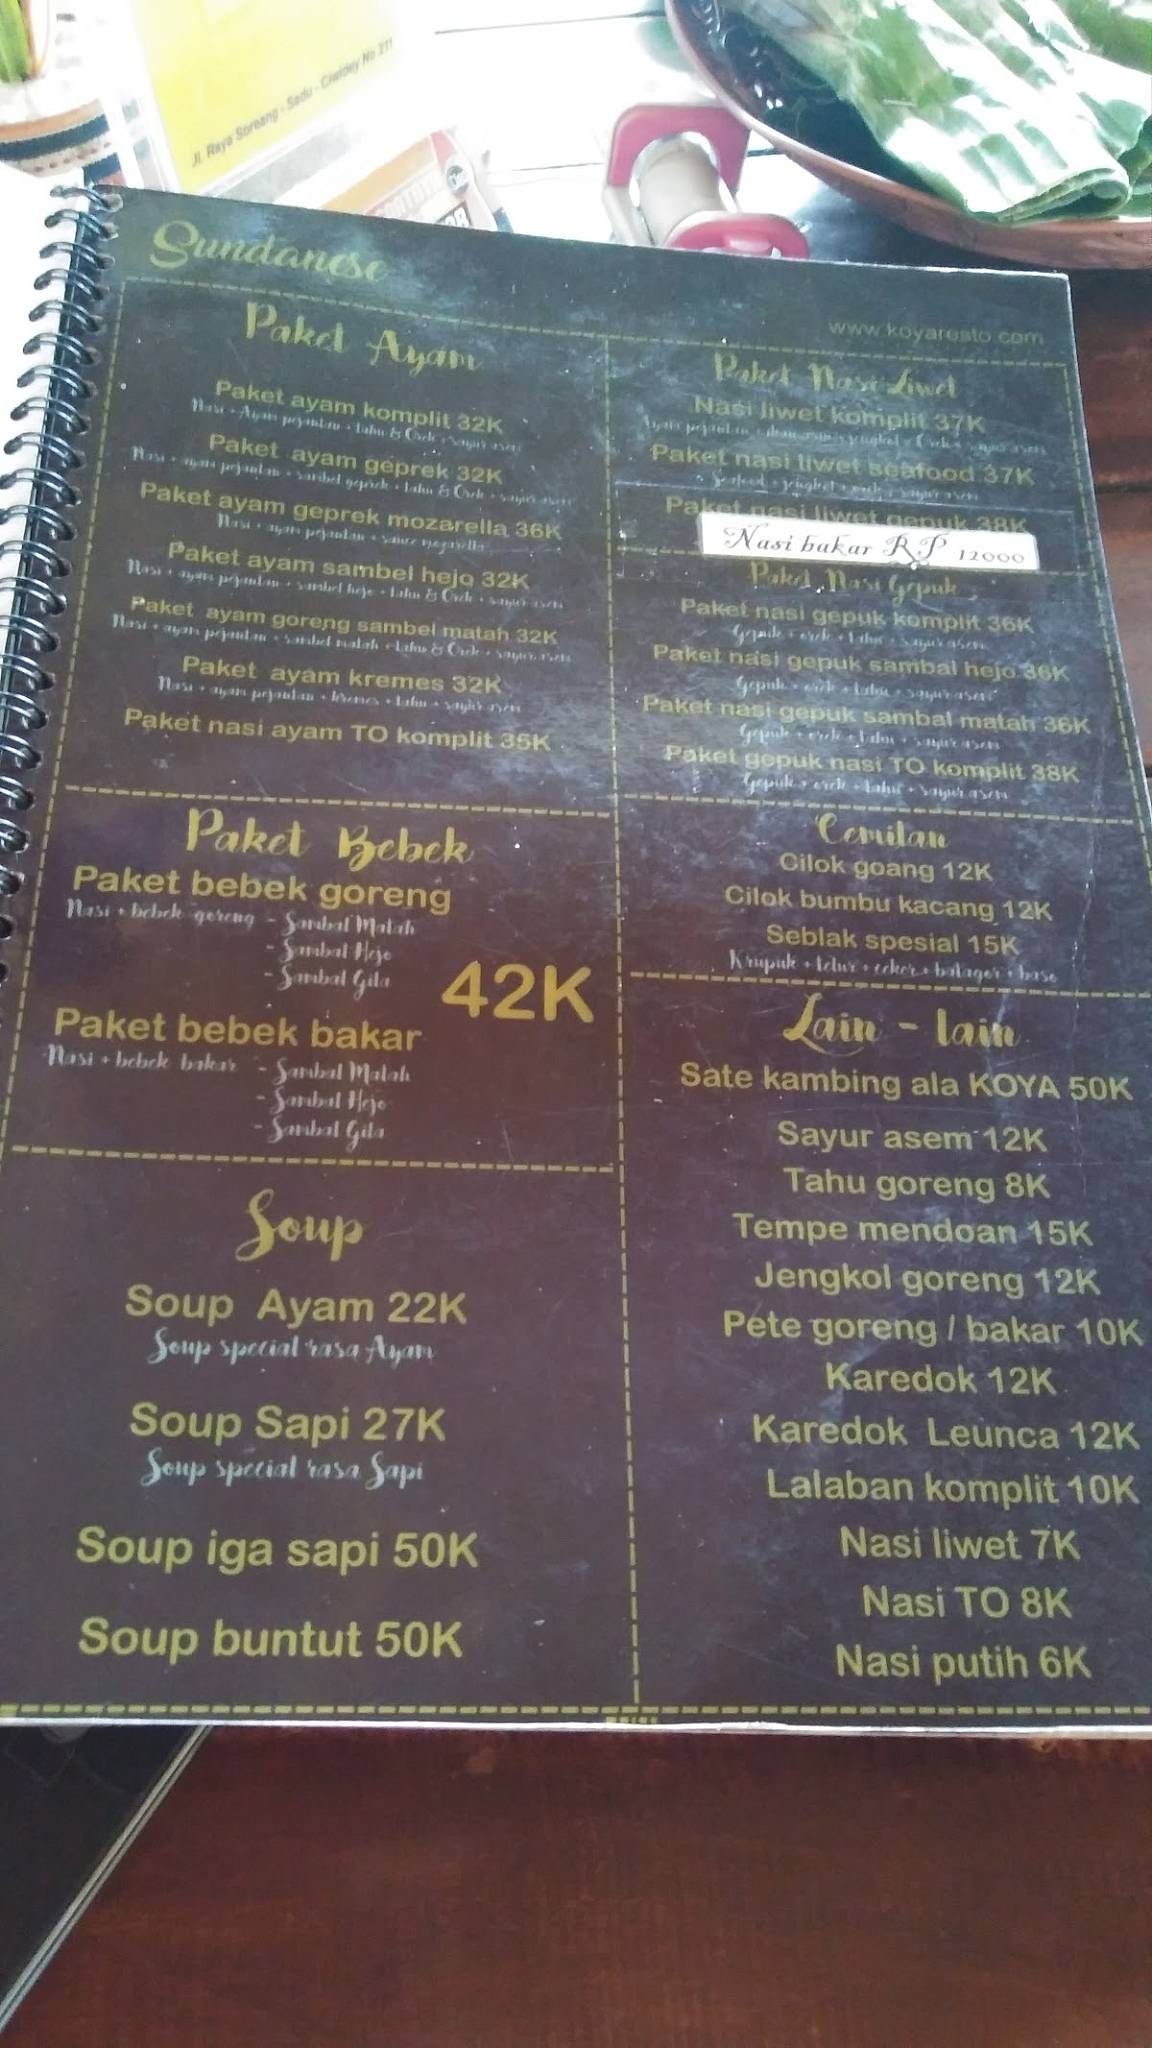 Jl. Raya Soreang - Sadu - Ciwidey No 211
Sundanese
www.koyaresto.com
Paket Ayam
Paket ayam komplit 32K
Nasi + Ayam pejantan + tahu & Orek + sayur asem
Paket ayam geprek 32K
Nasi + ayam pejantan + sambel geprek + tahu & Orek + sayur asem
Paket ayam geprek mozarella 36K
Nasi + ayam pejantan + sauce mozarella
Paket ayam sambel hejo 32K
Nasi + ayam pejantan + sambel hejo + tahu & Orek + sayur asem
Paket ayam goreng sambel matah 32K
Nasi + ayam pejantan + sambel matah + tahu & Orek + sayur asem
Paket ayam kremes 32K
Nasi + ayam pejantan + kremes + tahu + sayur asem
Paket nasi ayam TO komplit 35K
Paket Bebek
Paket bebek goreng
Nasi + bebek goreng - Sambal Matah
- Sambal Hejo
- Sambal Gila
42K
Paket bebek bakar
Nasi + bebek bakar - Sambal Matah
- Sambal Hejo
- Sambal Gila
Soup
Soup Ayam 22K
Soup special rasa Ayam
Soup Sapi 27K
Soup special rasa Sapi
Soup iga sapi 50K
Soup buntut 50K
Paket Nasi Liwet
Nasi liwet komplit 37K
Ayam pejantan + ikan asin + jengkol + Orek + sayur asem
Paket nasi liwet seafood 37K
Seafood + jengkol + orek + sayur asem
Paket nasi liwet gepuk 38K
Nasi bakar RP 12000
Paket Nasi Gepuk
Paket nasi gepuk komplit 36K
Gepuk + orek + tahu + sayur asem
Paket nasi gepuk sambal hejo 36K
Gepuk + orek + tahu + sayur asem
Paket nasi gepuk sambal matah 36K
Gepuk + orek + tahu + sayur asem
Paket gepuk nasi TO komplit 38K
Gepuk + orek + tahu + sayur asem
Cemilan
Cilok goang 12K
Cilok bumbu kacang 12K
Seblak spesial 15K
Krupuk + telur + ceker + batagor + baso
Lain - lain
Sate kambing ala KOYA 50K
Sayur asem 12K
Tahu goreng 8K
Tempe mendoan 15K
Jengkol goreng 12K
Pete goreng / bakar 10K
Karedok 12K
Karedok Leunca 12K
Lalaban komplit 10K
Nasi liwet 7K
Nasi TO 8K
Nasi putih 6K